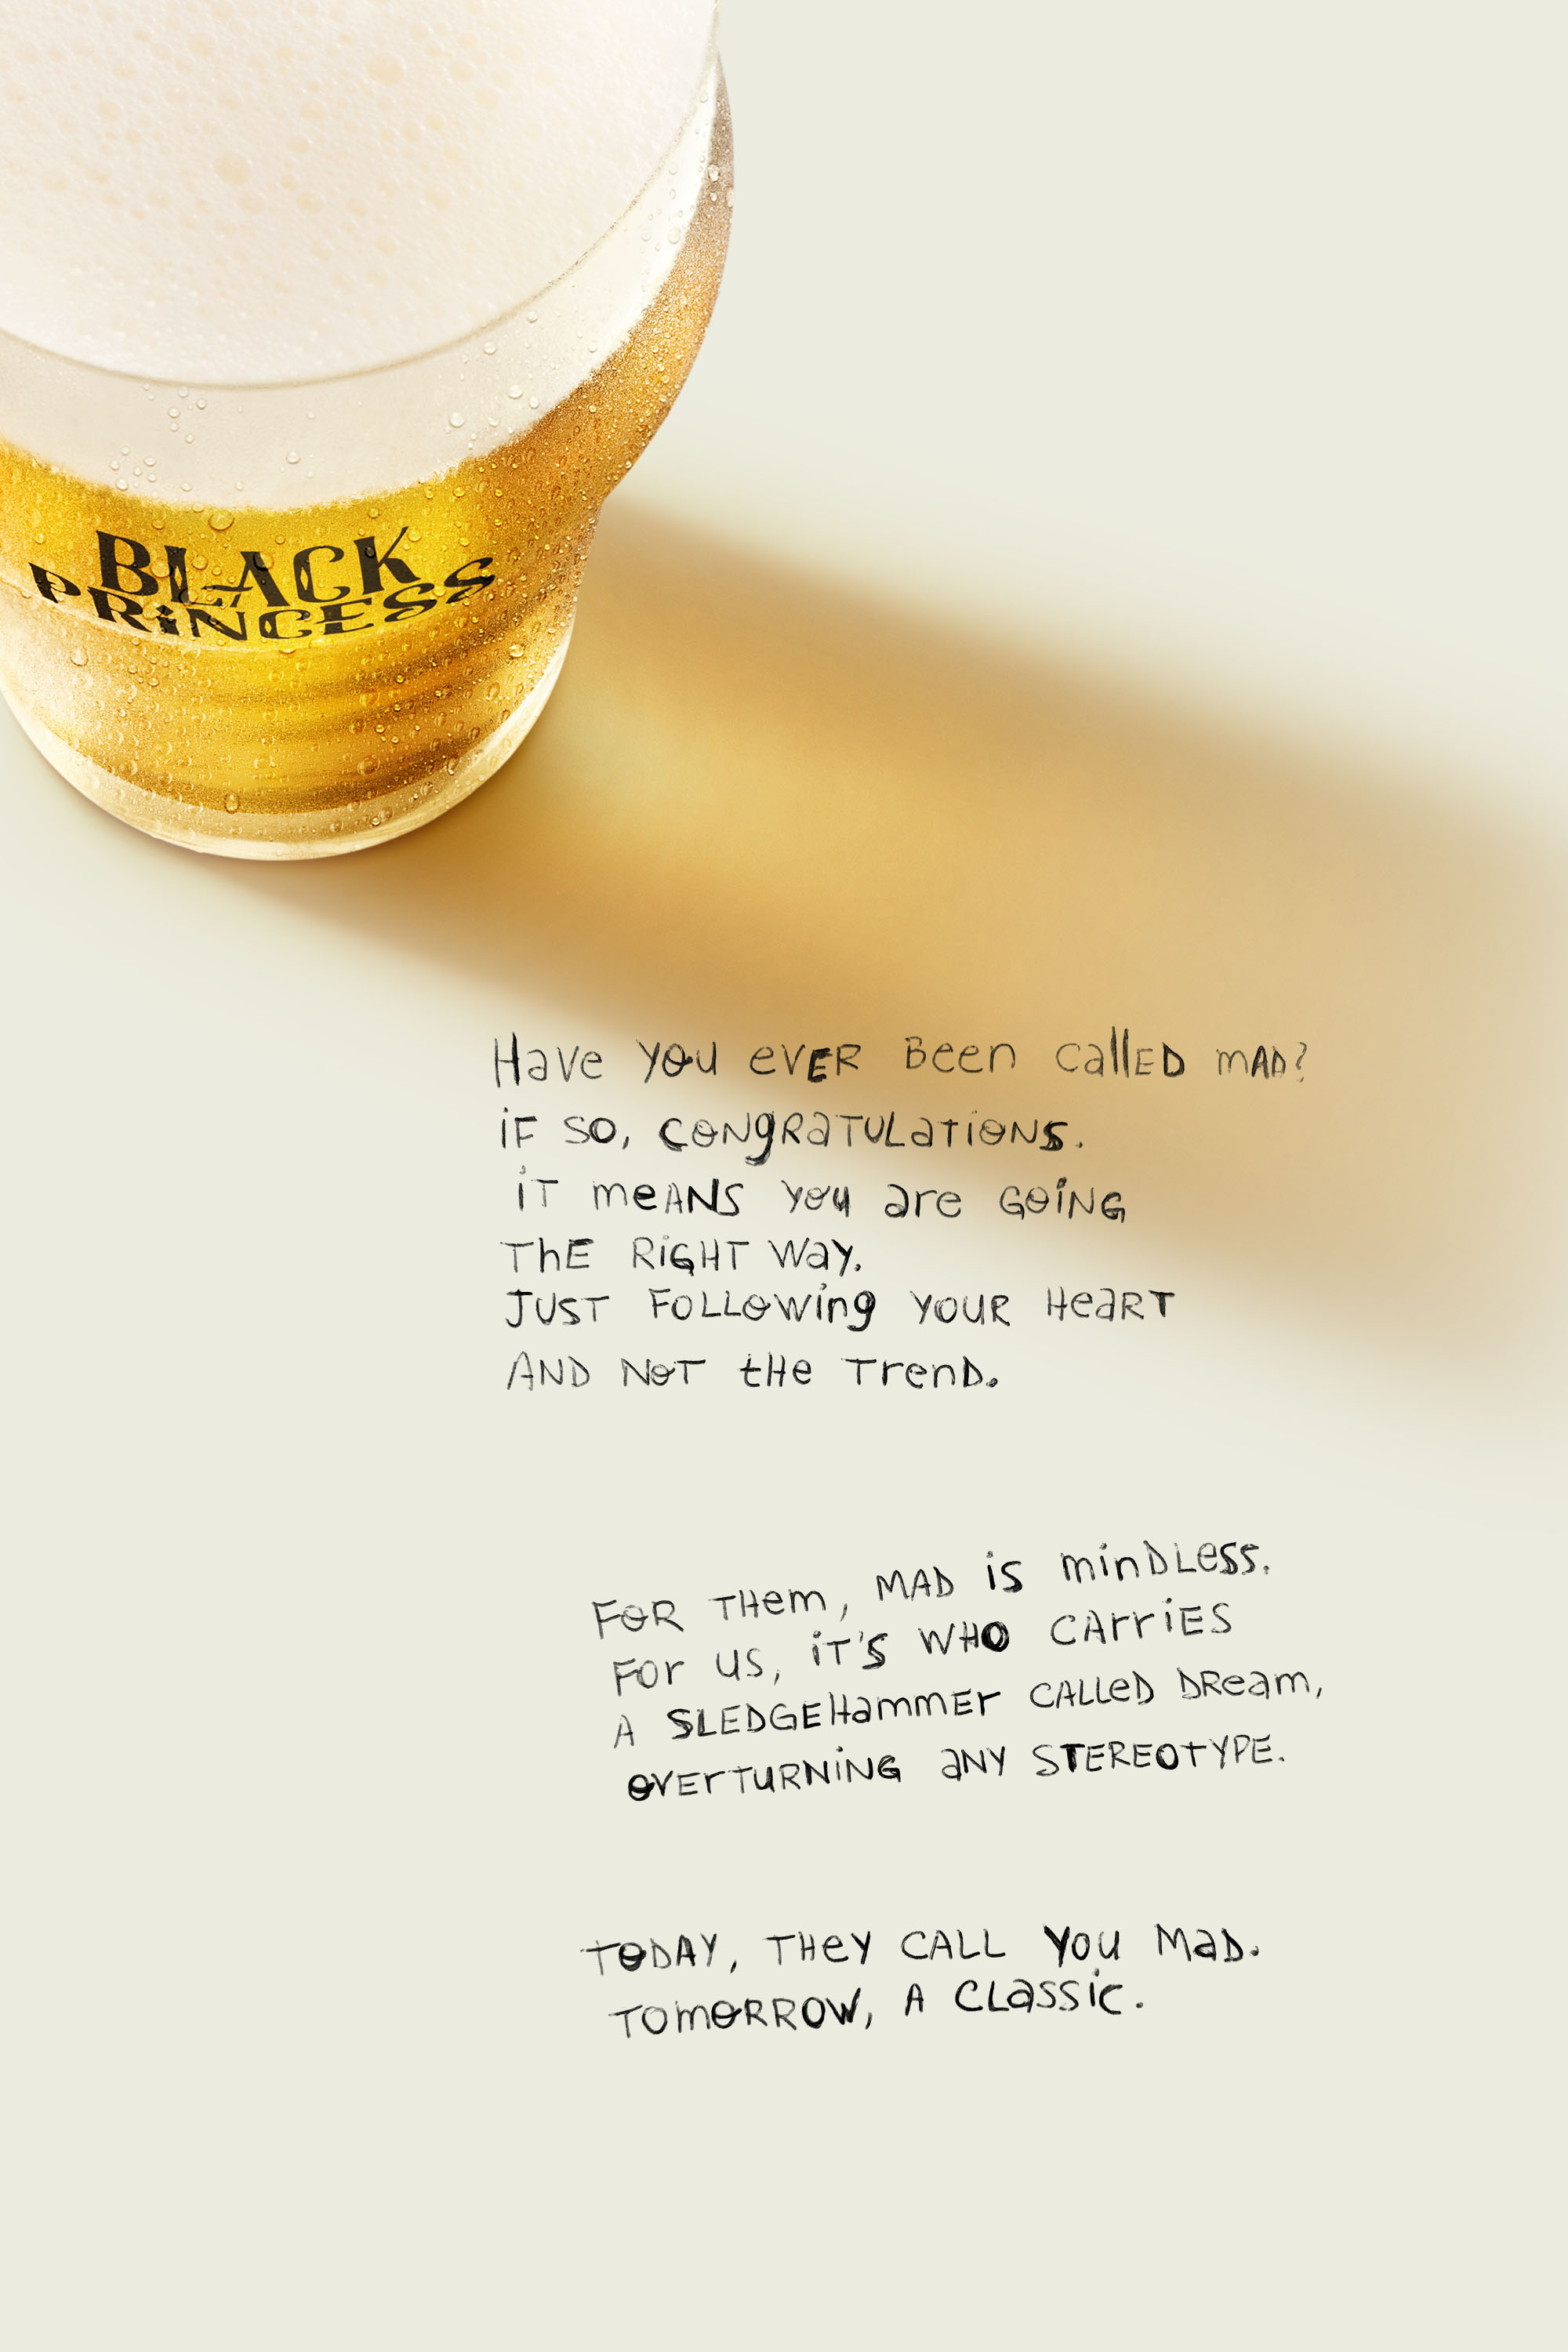 BLACK
PRiNCESS
Have you eVER Been callED mAD?
iF SO, CONgRaTULaTiONS.
iT meANS you are GOiNG
ThE RiGHT Way.
JUST FOLLOWing YOUR HeaRT
AND NOT tHe TrenD.
FOR THem, MAD is minDLeSS.
FOr us, iT'S WHO CArriES
A SLEDGEHammEr CALLeD DReam,
OVErTURNiNG aNY STEREOTYPE.
TODAY, THeY CALL You MaD.
TOmORROW, A CLassic.